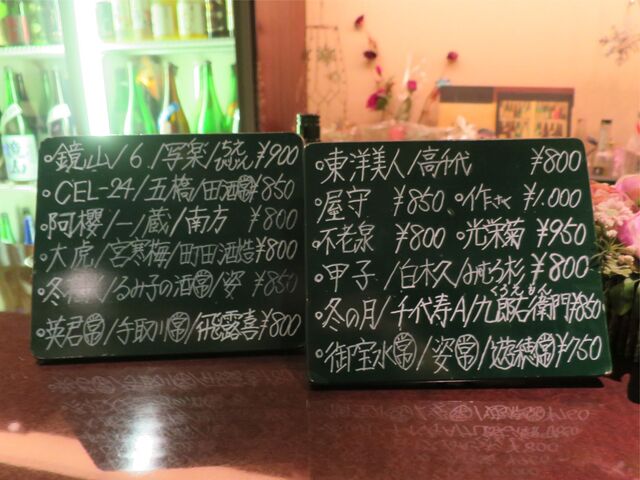 ・鏡山/6/写楽/ ¥900
・CEL-24/五橋/田酒 ¥850
阿櫻/一ノ蔵/南方 ¥800
・大虎/宮寒梅/町田酒造 ¥800
・冬 /るみ子の酒 常/姿 ¥850
・英君 常/手取川 常/飛露喜 ¥800
・東洋美人/高千代 ¥800
・屋守 ¥850 ・作 ¥1.000
・不老泉 ¥800 ・光栄菊 ¥950
・甲子/白木久/みむろ杉 ¥800
くろえもん
・冬の月/千代寿A/九郎右衛門 ¥850
・御宝水 常/姿 常/ 常 ¥750